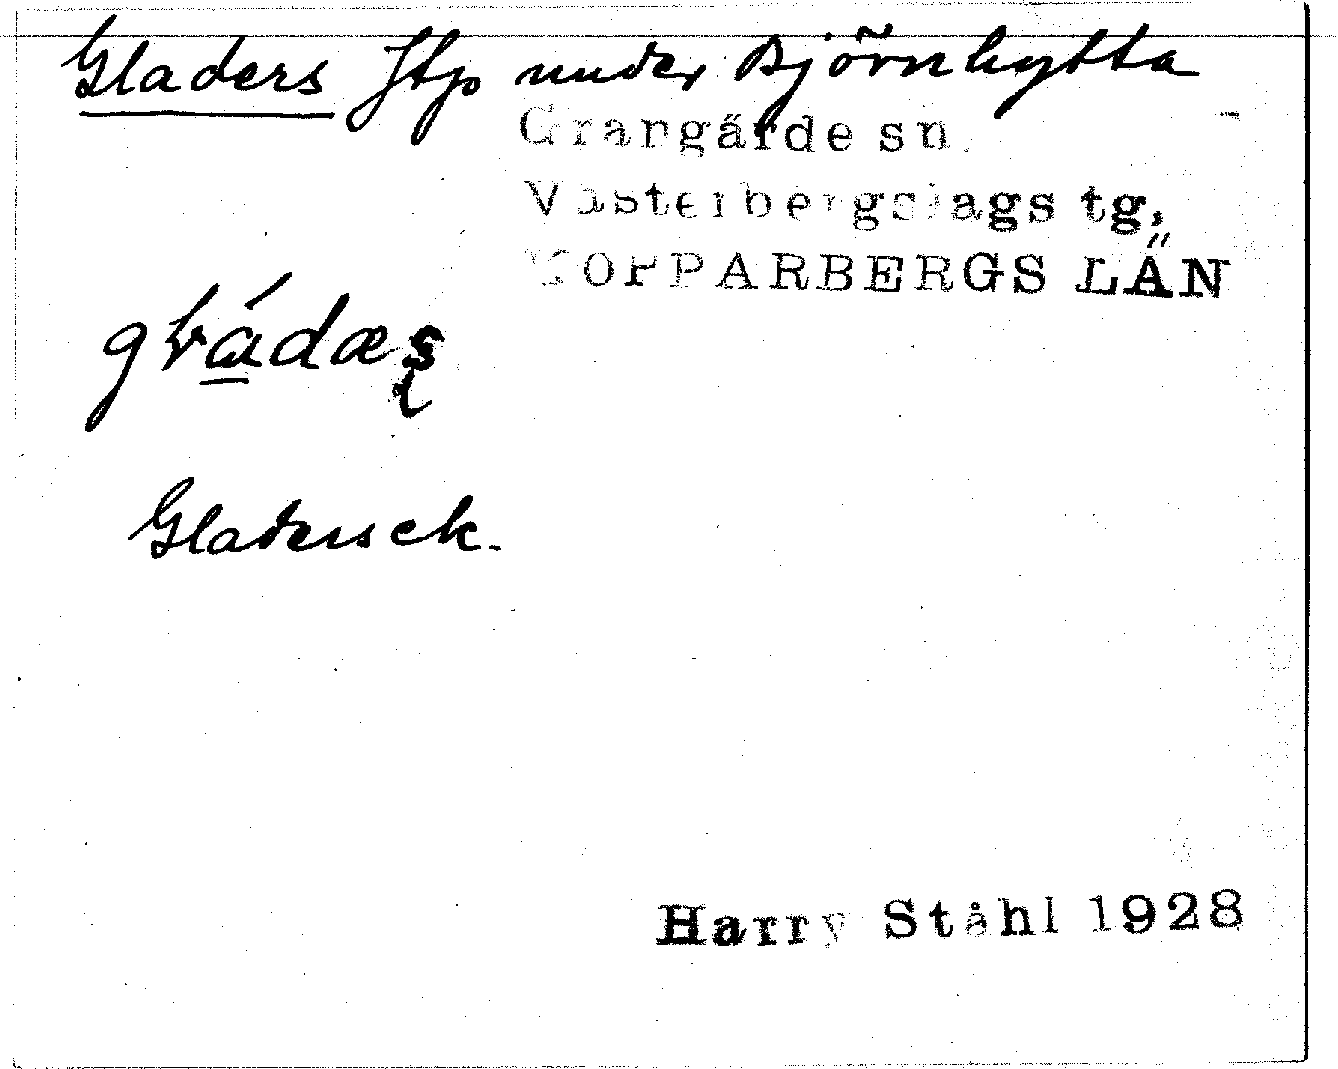 Gladers Jtp under Björnhytta
Grangärde sn.
Västerbergslags tg,
KOPPARBERGS LÄN
Gladersek.
Harry Ståhl 1928